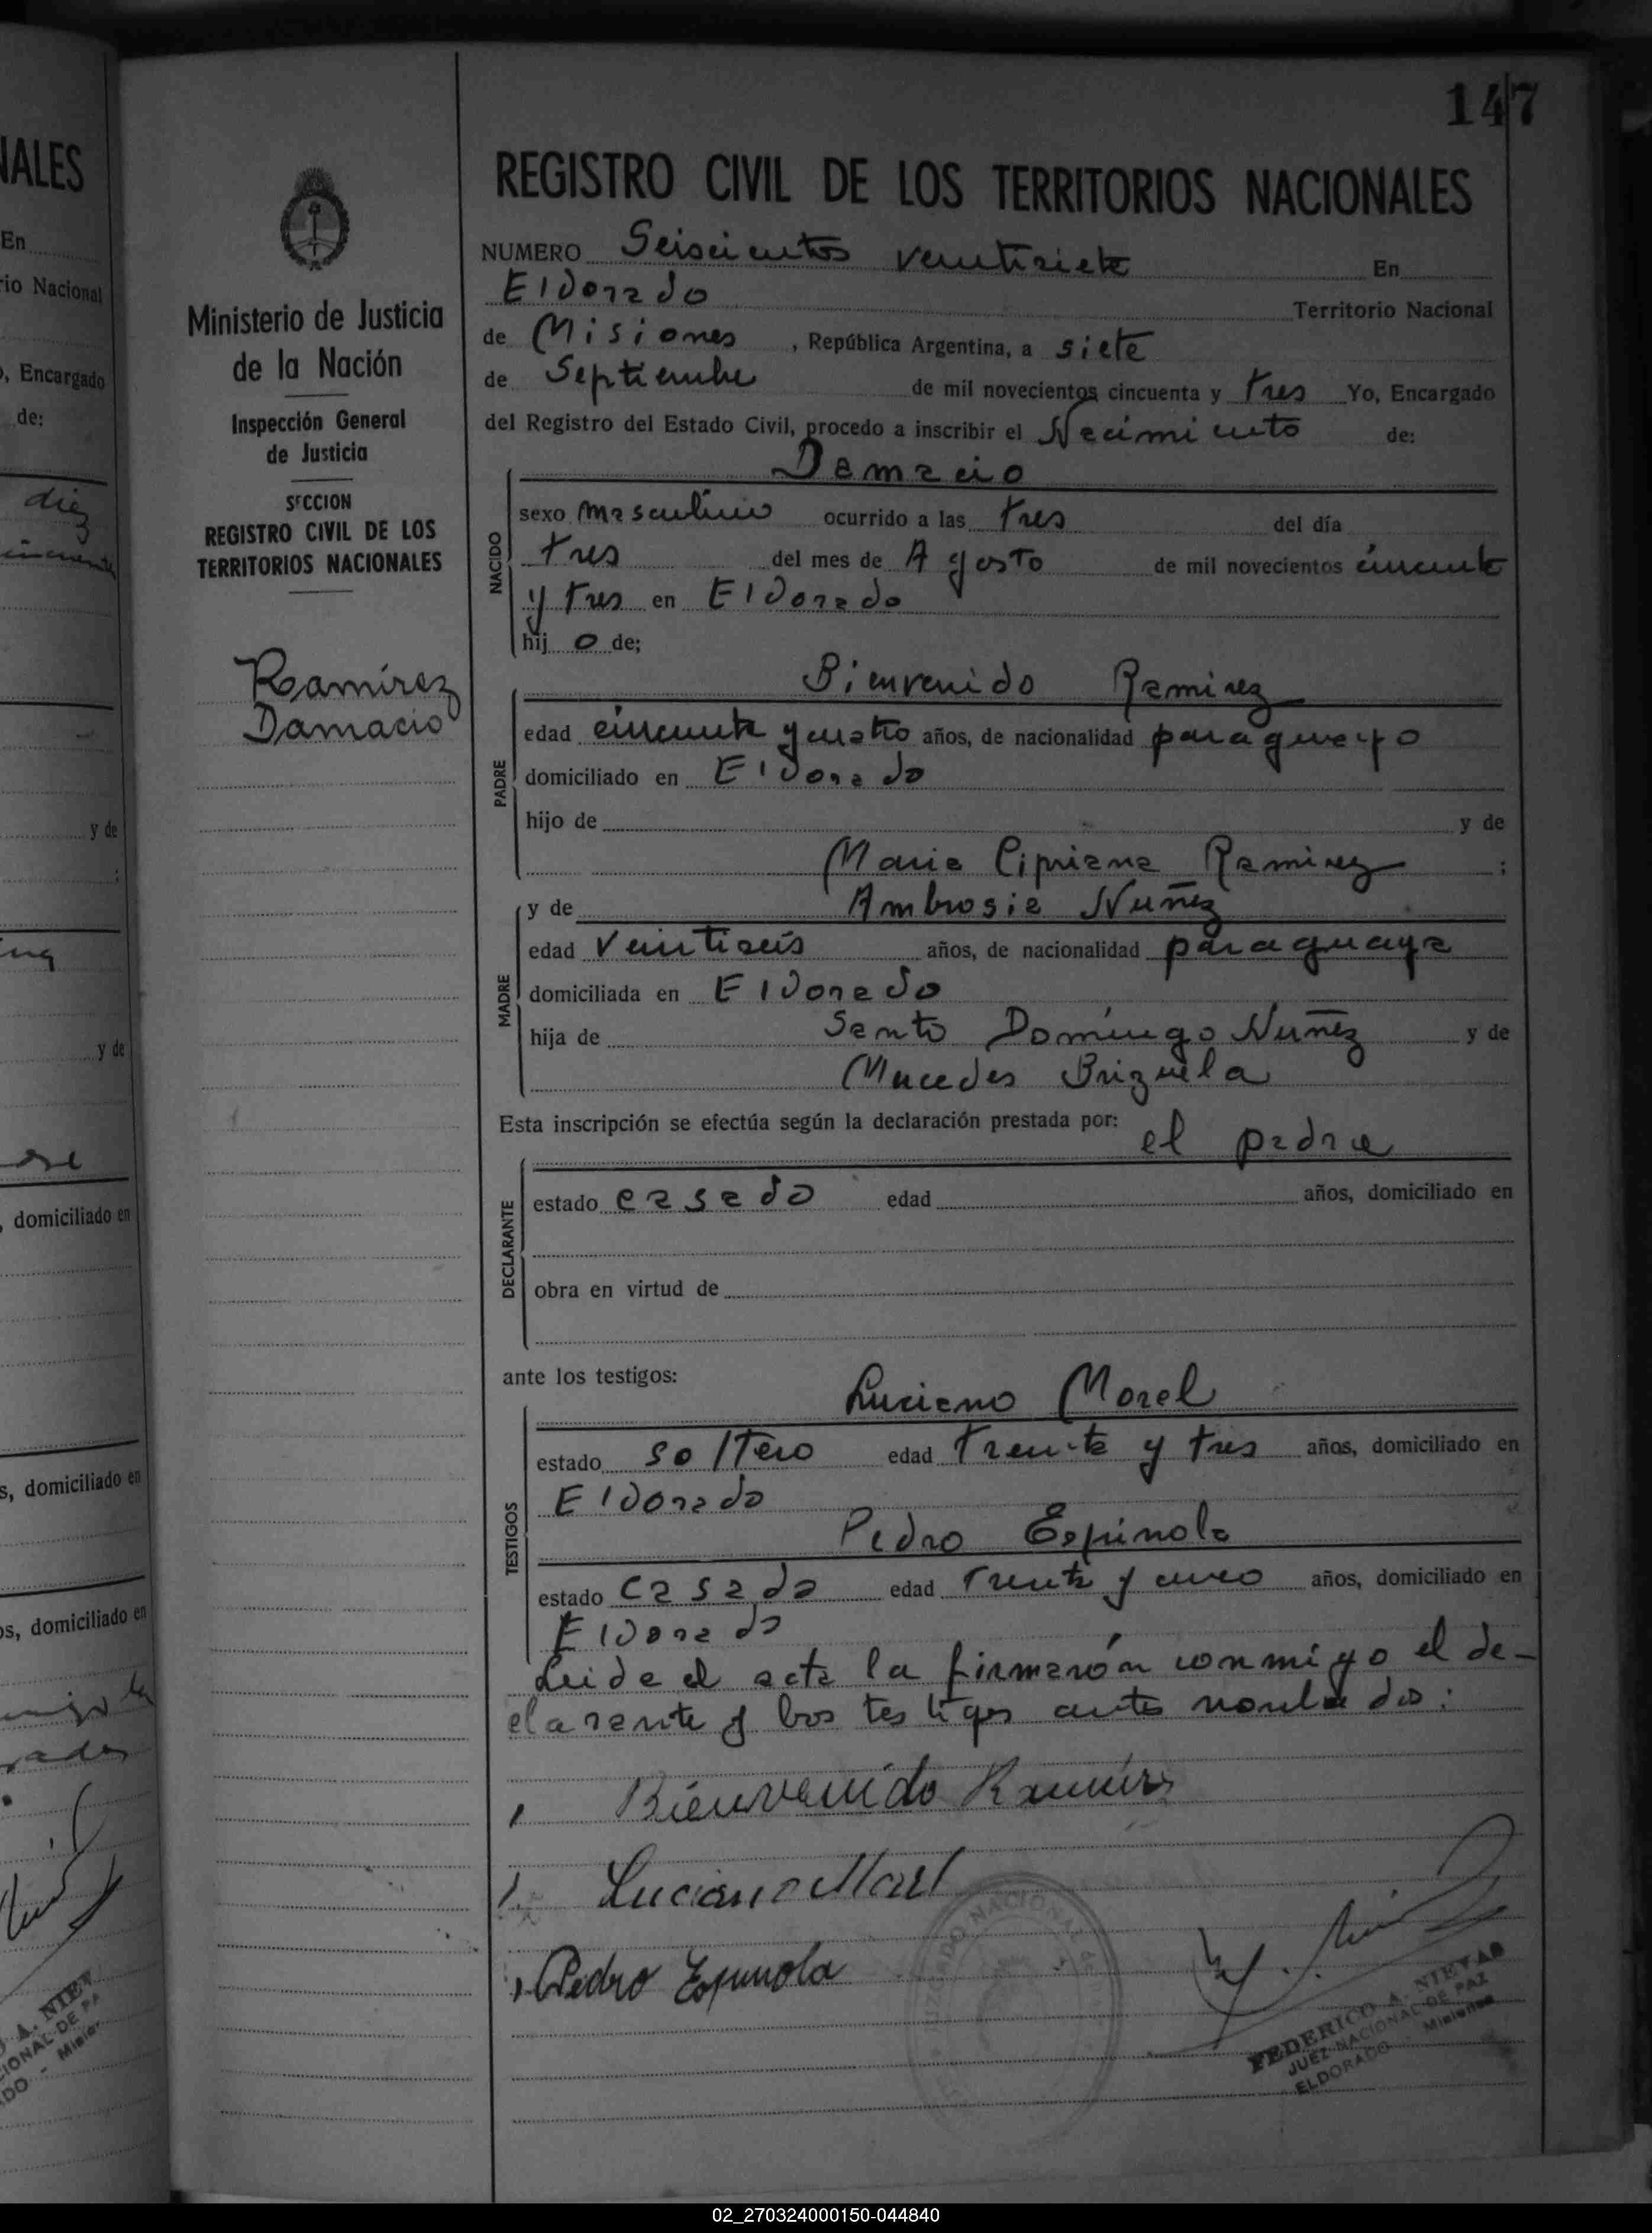 147
REGISTRO CIVIL DE LOS TERRITORIOS NACIONALES
NUMERO Seiscientos veintisiete En
Eldorado Territorio Nacional
de Misiones, República Argentina, a siete
de Septiembre de mil novecientos cincuenta y tres Yo, Encargado
del Registro del Estado Civil, procedo a inscribir el Nacimiento de:
Ministerio de Justicia
de la Nación
Inspección General
de Justicia
SECCION
REGISTRO CIVIL DE LOS
TERRITORIOS NACIONALES
Ramírez
Damacio
NACIDO
Damacio
sexo masculino ocurrido a las tres del día
tres del mes de Agosto de mil novecientos cincuenta
y tres en Eldorado
hij o de;
PADRE
Bienvenido Ramirez
edad cincuenta y cuatro años, de nacionalidad paraguayo
domiciliado en Eldorado
hijo de y de
Maria Cipriana Ramirez ;
MADRE
y de Ambrosia Nuñez
edad veintiseis años, de nacionalidad paraguaya
domiciliada en Eldorado
hija de Santo Domingo Nuñez y de
Mercedes Brizuela
Esta inscripción se efectúa según la declaración prestada por:
el padre
DECLARANTE
estado casado edad años, domiciliado en
obra en virtud de
ante los testigos:
TESTIGOS
Luciano Morel
estado soltero edad treinta y tres años, domiciliado en
Eldorado
Pedro Espinola
estado casado edad treinta y cinco años, domiciliado en
Eldorado
Leida el acta la firmarón conmigo el de-
clarante y los testigos antes nombrados:
Bienvenido Ramirez
Luciano Morel
Pedro Espinola
JUZGADO NACIONAL DE
FEDERICO A. NIEVAS
JUEZ NACIONAL DE PAZ
ELDORADO - Misiones
NALES
En
rio Nacional
o, Encargado
de:
diez
cincuenta
y de
;
y de
, domiciliado en
s, domiciliado en
os, domiciliado en
A. NIEV
IONAL DE PA
DO - Mision
02_270324000150-044840